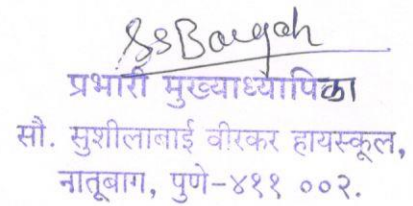 प्रभारी मुख्याध्यापिका
सौ. सुशीलाबाई वीरकर हायस्कूल,
नातूबाग, पुणे-४११ ००२.